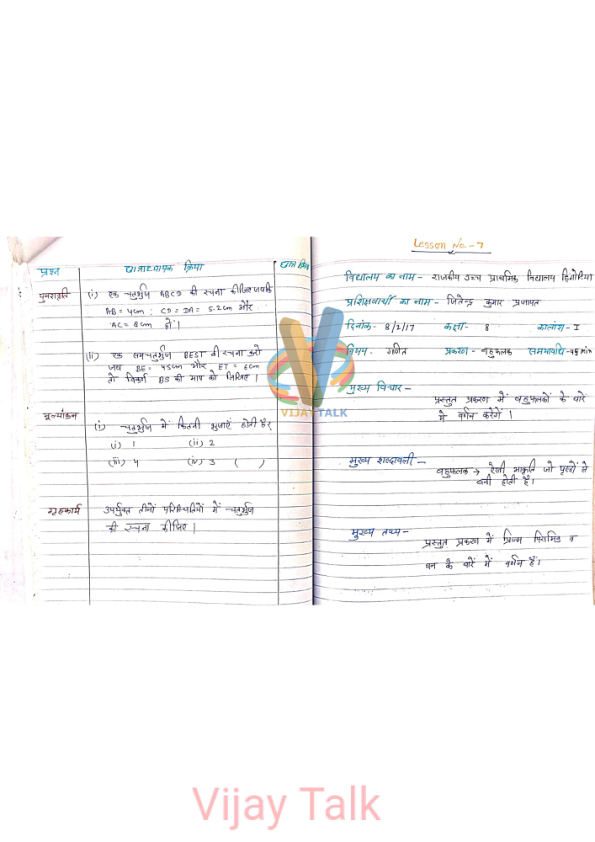 प्रश्न छात्राध्यापक क्रिया
पुनरावृति (i) एक चतुर्भुज ABCD की रचना कीजिए जबकि
AB = 4cm ; CD = DA = 5.2cm और
AC = 8cm हो।
(ii) एक समचतुर्भुज BEST की रचना करो
जब BE = 4.5cm और ET = 6cm
तो विकर्ण BS की माप को लिखिए।
मूल्यांकन
(i) चतुर्भुज में कितनी भुजाएँ होती है?
(i) 1 (ii) 2
(iii) 4 (iv) 3 ( )
गृहकार्य उपर्युक्त तीनों परिस्थितियों में चतुर्भुज
की रचना कीजिए।
Lesson No. - 7
विद्यालय का नाम - राजकीय उच्च प्राथमिक विद्यालय
प्रशिक्षणार्थी का नाम - जितेन्द्र कुमार प्रजापत
दिनांक - 8/2/17 कक्षा - 8 कालांश - I
विषय - गणित प्रकरण - बहुफलक समयावधि - 45 min
मुख्य विचार -
प्रस्तुत प्रकरण में बहुफलकों के बारे
में वर्णन करेंगे।
मुख्य शब्दावली -
बहुफलक → ऐसी आकृति जो पृष्ठों से
बनी होती है।
मुख्य तथ्य -
प्रस्तुत प्रकरण में प्रिज्म पिरामिड व
घन के बारे में वर्णन हैं।
VIJAY TALK
Vijay Talk